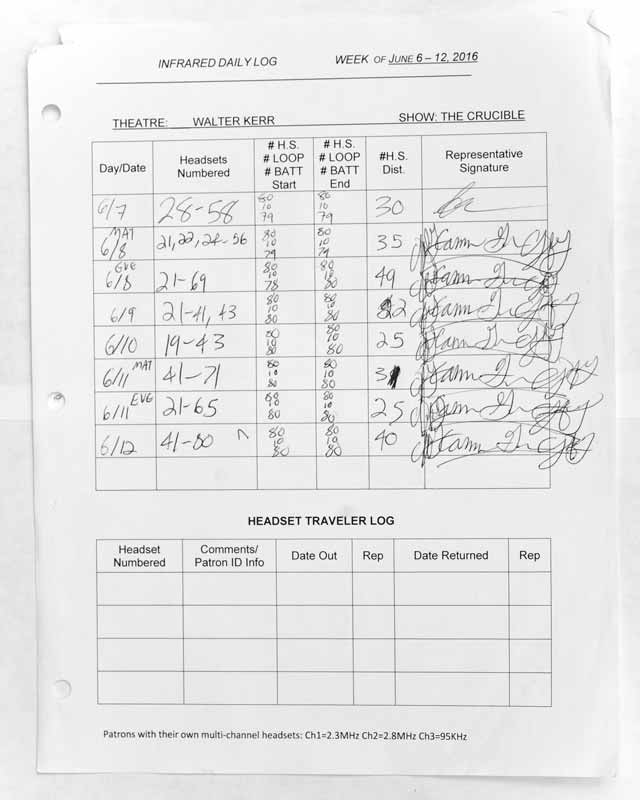 INFRARED DAILY LOG WEEK OF JUNE 6 – 12, 2016
THEATRE: WALTER KERR SHOW: THE CRUCIBLE
Day/Date Headsets Numbered # H.S. # LOOP # BATT Start # H.S. # LOOP # BATT End #H.S. Dist. Representative Signature
6/7 28-58 80 10 79 80 10 79 30
6/8 MAT 21,22,24-56 80 10 79 80 10 79 35
6/8 EVE 21-69 80 10 78 80 10 80 49
6/9 21-41, 43 80 10 80 80 10 80 22
6/10 19-43 80 10 80 80 10 80 25
6/11 MAT 41-71 80 10 80 80 10 80
6/11 EVE 21-65 80 10 80 80 10 80 25
6/12 41-80 80 10 80 80 10 80 40
HEADSET TRAVELER LOG
Headset Numbered Comments/ Patron ID Info Date Out Rep Date Returned Rep
Patrons with their own multi-channel headsets: Ch1=2.3MHz Ch2=2.8MHz Ch3=95KHz